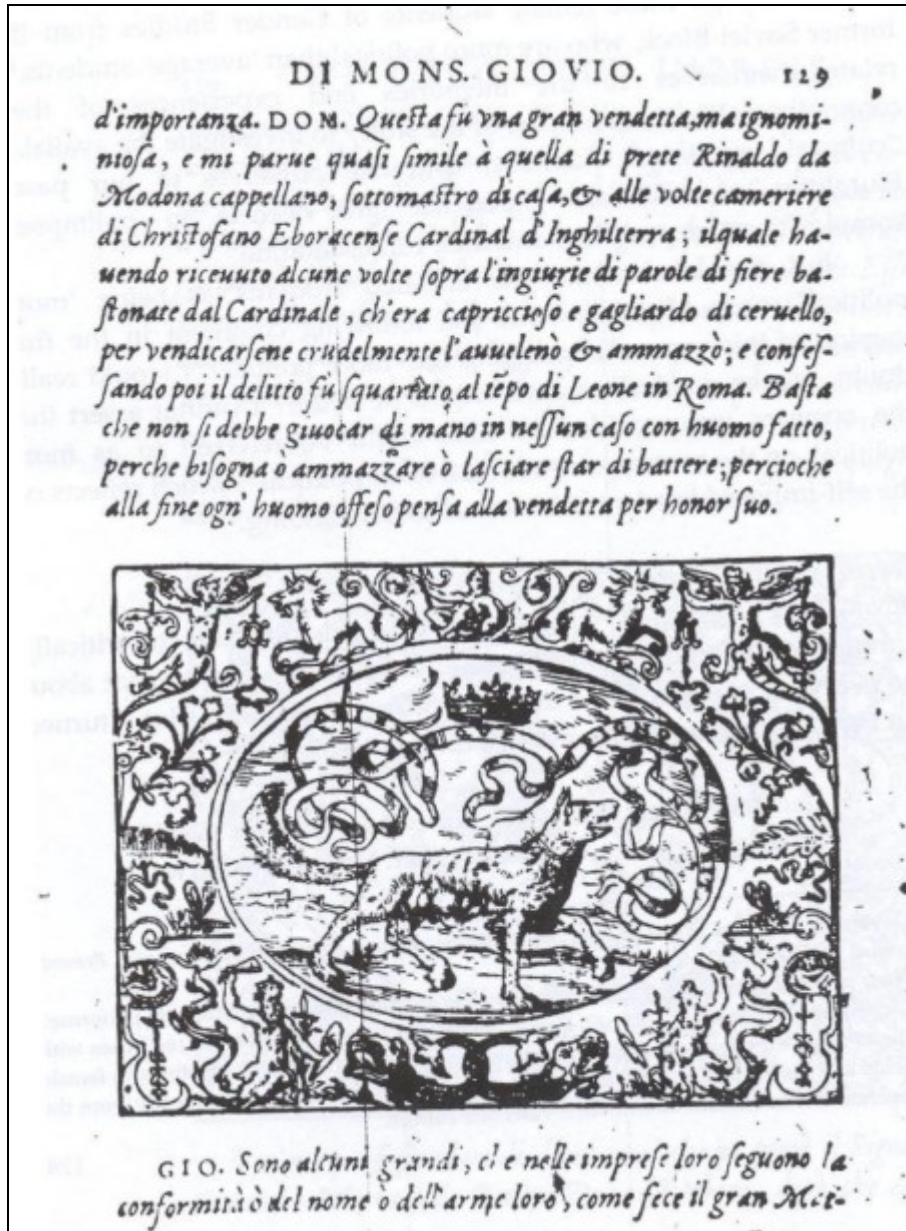 DI MONS. GIOVIO. 129
d'importanza. DOM. Questa fu vna gran vendetta, ma ignomi-
niosa, e mi parue quasi simile à quella di prete Rinaldo da
Modona cappellano, sottomastro di casa, & alle volte cameriere
di Christofano Eboracense Cardinal d'Inghilterra; ilquale ha-
uendo riceuuto alcune volte sopra l'ingiurie di parole di fiere ba-
stonate dal Cardinale, ch'era capriccioso e gagliardo di ceruello,
per vendicarsene crudelmente l'auuelenò & ammazzò; e confes-
sando poi il delitto fu squartato al tēpo di Leone in Roma. Basta
che non si debbe giuocar di mano in nessun caso con huomo fatto,
perche bisogna o ammazzare ò lasciare star di battere; percioche
alla fine ogn' huomo offeso pensa alla vendetta per honor suo.
GIO. Sono alcuni grandi, che nelle imprese loro seguono la
conformità ò del nome ò dell'arme loro, come fece il gran Mat-